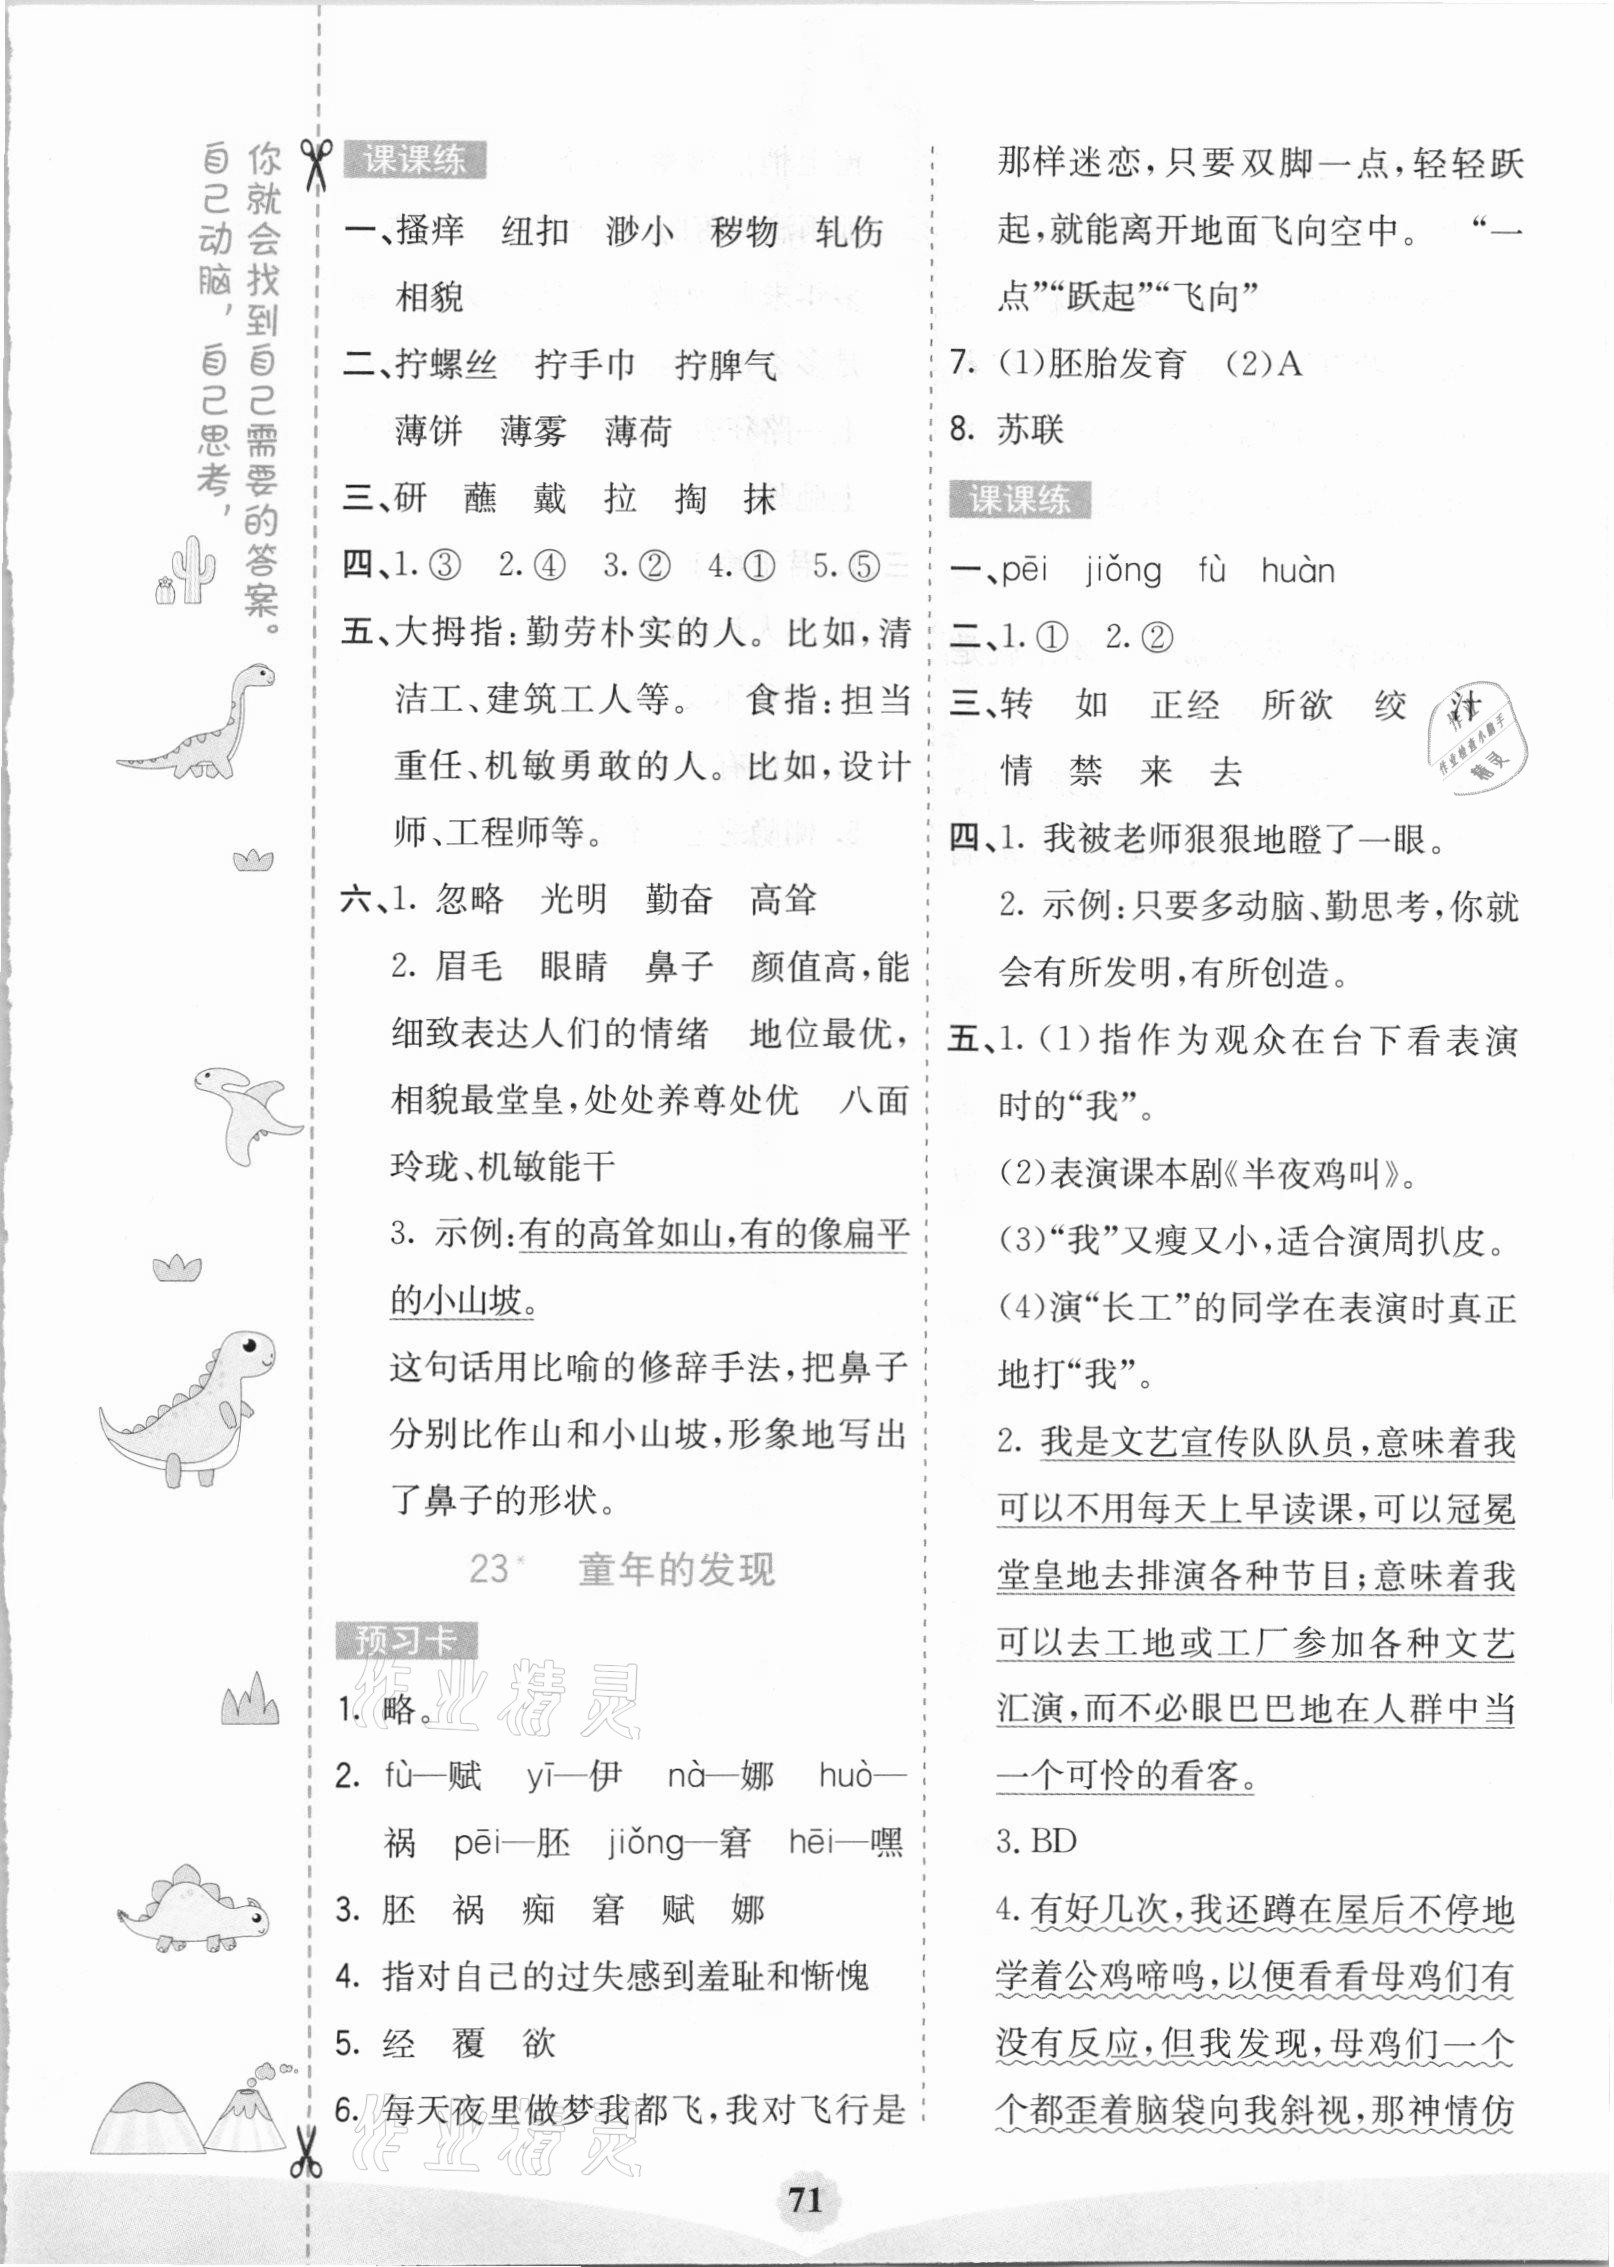 你就会找到自己需要的答案。
自己动脑，自己思考，
课课练
一、搔痒 纽扣 渺小 秽物 轧伤
相貌
二、拧螺丝 拧手巾 拧脾气
薄饼 薄雾 薄荷
三、研 蘸 戴 拉 掏 抹
四、1.③ 2.④ 3.② 4.① 5.⑤
五、大拇指：勤劳朴实的人。比如，清
洁工、建筑工人等。 食指：担当
重任、机敏勇敢的人。比如，设计
师、工程师等。
六、1. 忽略 光明 勤奋 高耸
2. 眉毛 眼睛 鼻子 颜值高，能
细致表达人们的情绪 地位最优，
相貌最堂皇，处处养尊处优 八面
玲珑、机敏能干
3. 示例：有的高耸如山，有的像扁平
的小山坡。
这句话用比喻的修辞手法，把鼻子
分别比作山和小山坡，形象地写出
了鼻子的形状。
23* 童年的发现
预习卡
1. 略。
2. fù—赋 yī—伊 nà—娜 huò—
祸 pēi—胚 jiǒng—窘 hēi—嘿
3. 胚 祸 痴 窘 赋 娜
4. 指对自己的过失感到羞耻和惭愧
5. 经 覆 欲
6. 每天夜里做梦我都飞，我对飞行是
那样迷恋，只要双脚一点，轻轻跃
起，就能离开地面飞向空中。 “一
点”“跃起”“飞向”
7. (1)胚胎发育 (2)A
8. 苏联
课课练
一、pēi jiǒng fù huàn
二、1.① 2.②
三、转 如 正经 所欲 绞 汁
情 禁 来 去
四、1. 我被老师狠狠地瞪了一眼。
2. 示例：只要多动脑、勤思考，你就
会有所发明，有所创造。
五、1.(1)指作为观众在台下看表演
时的“我”。
(2)表演课本剧《半夜鸡叫》。
(3)“我”又瘦又小，适合演周扒皮。
(4)演“长工”的同学在表演时真正
地打“我”。
2. 我是文艺宣传队队员，意味着我
可以不用每天上早读课，可以冠冕
堂皇地去排演各种节目；意味着我
可以去工地或工厂参加各种文艺
汇演，而不必眼巴巴地在人群中当
一个可怜的看客。
3. BD
4. 有好几次，我还蹲在屋后不停地
学着公鸡啼鸣，以便看看母鸡们有
没有反应，但我发现，母鸡们一个
个都歪着脑袋向我斜视，那神情仿
作业精灵
作业精灵
作业
作业检查小助手
精灵
71